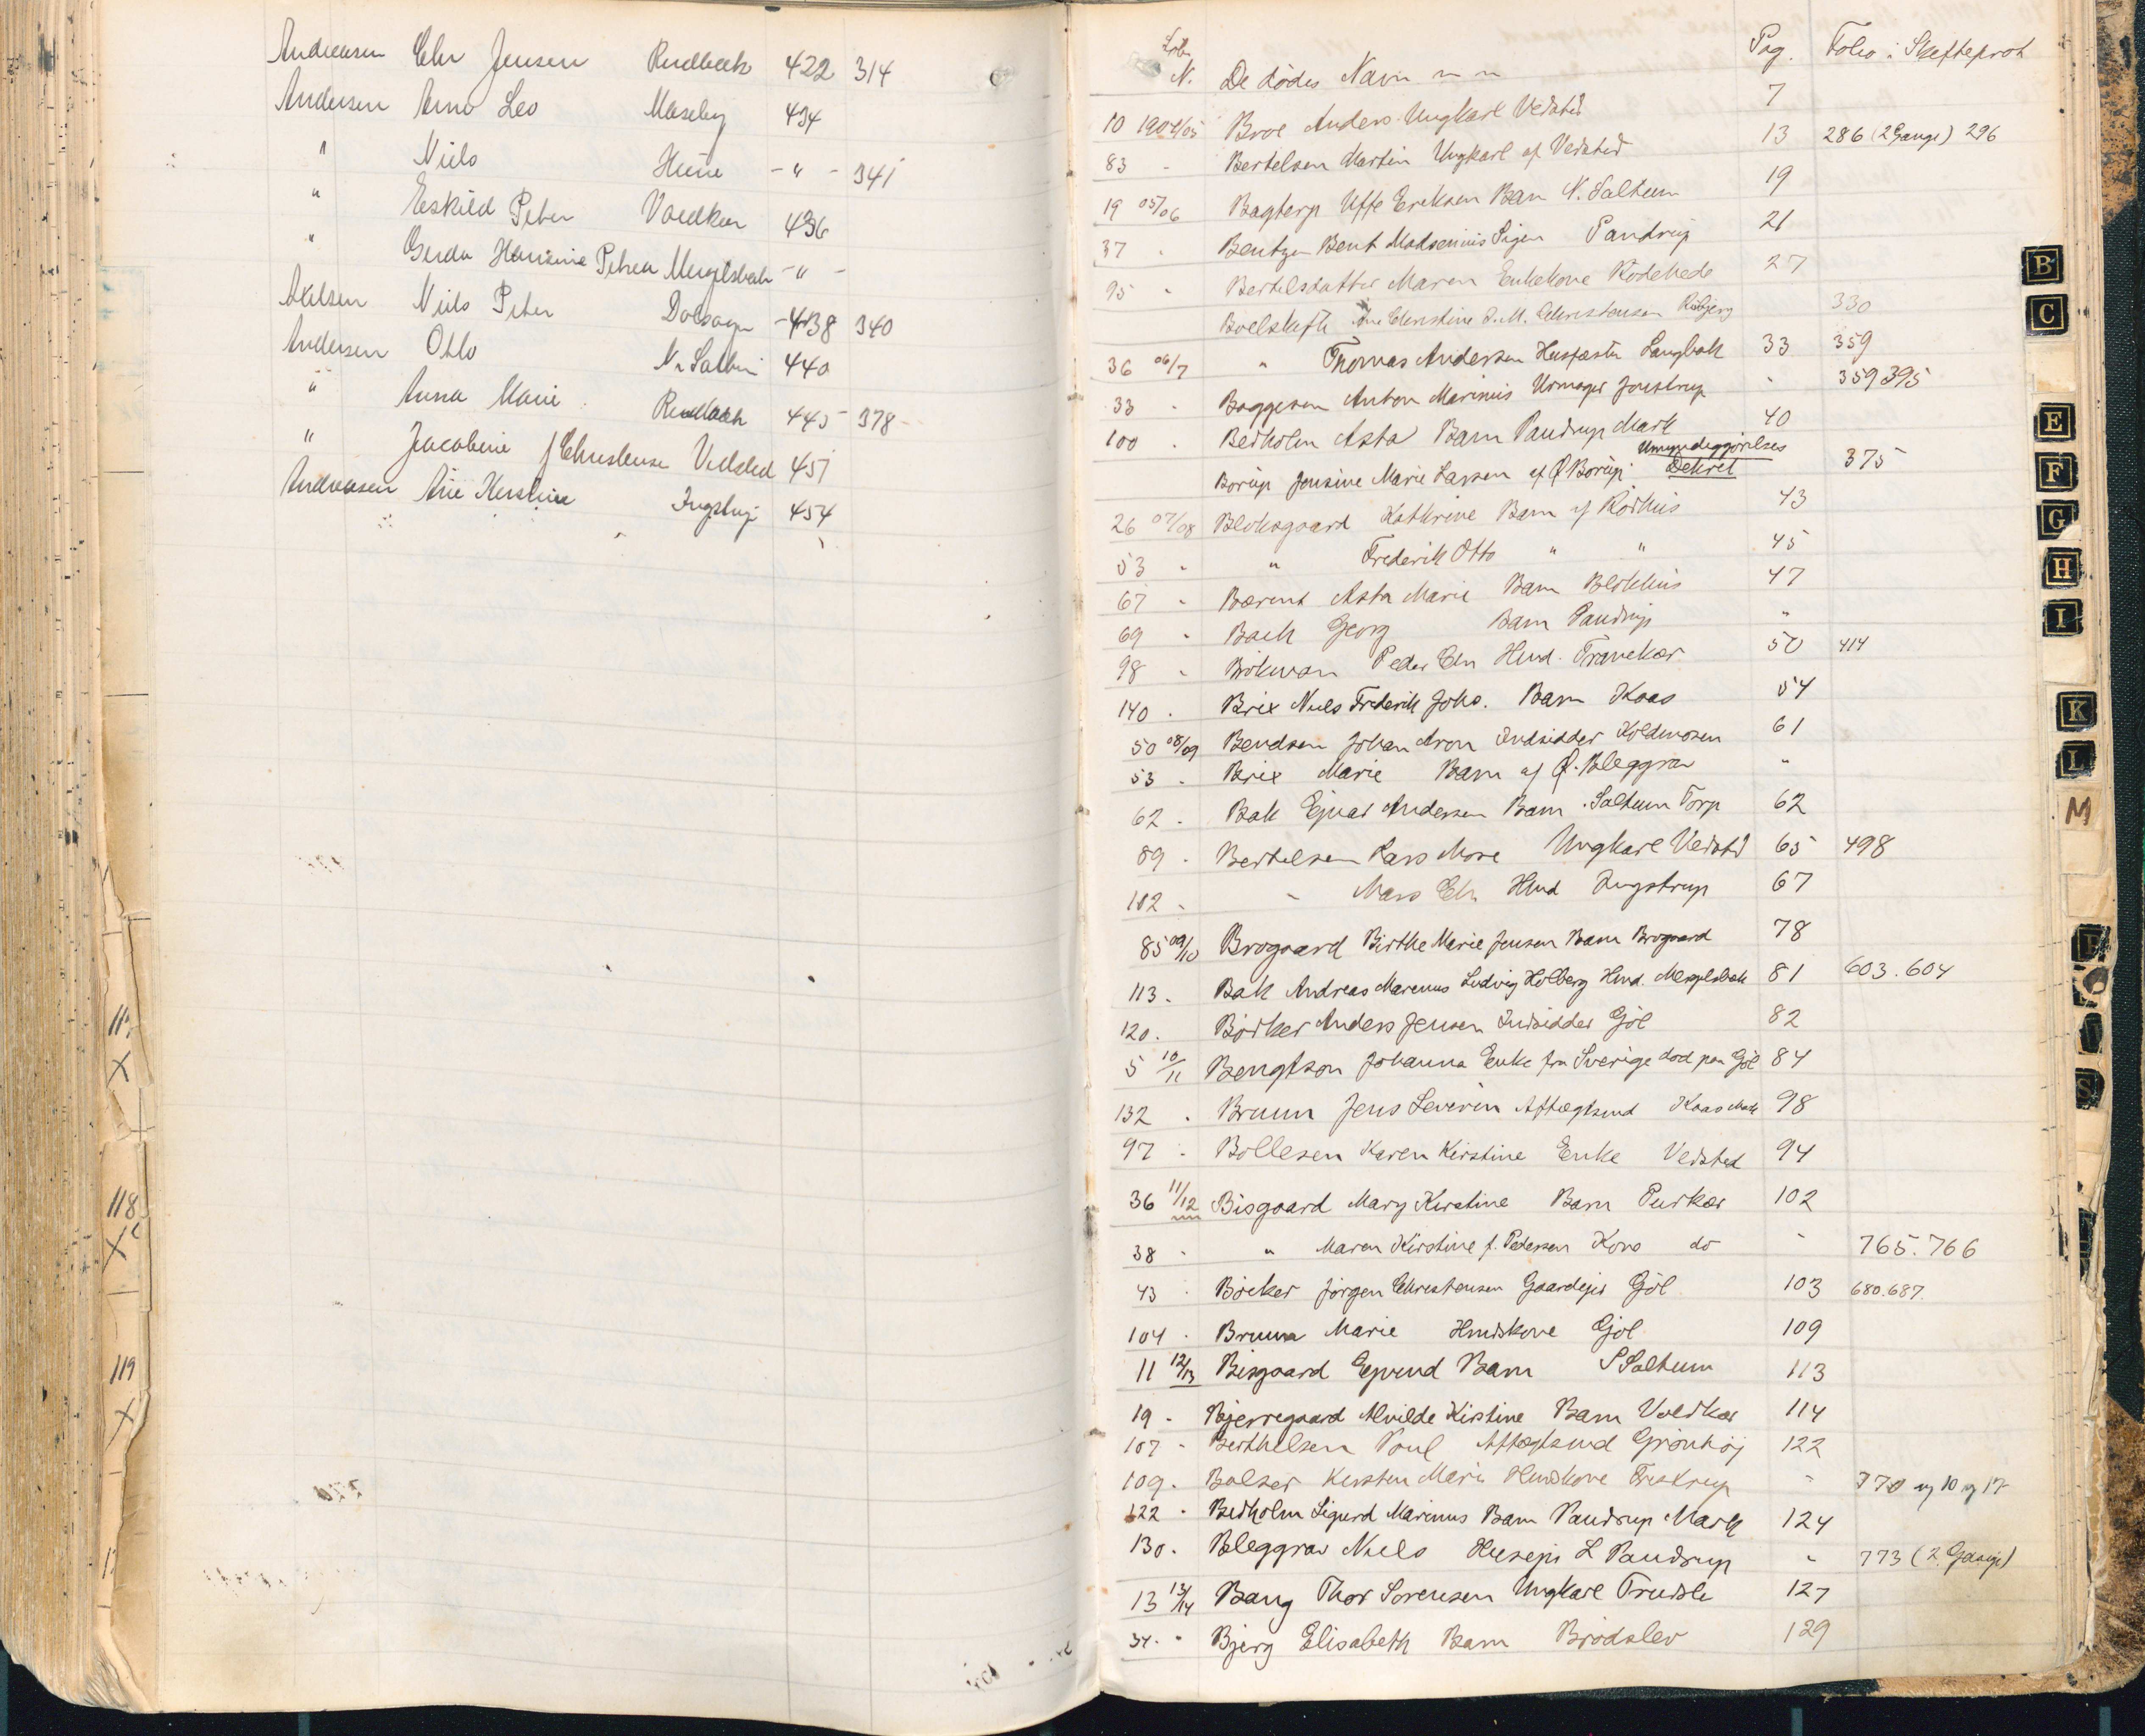 Andreasen Chr Jensen Rendbæk 422 314
Andersen Arno Leo Moseby 434
" Niels Hune - " - 341
" Eskild Peter Voldkær 436
" Gerda Hansine Petrea Mergelsbak - " -
Axelsen Niels Peter 438 340
Andersen Otto N. Saltum 440
" Anna Marie Rendbæk 445 378
" Jacobine f Christense Vedsted 451
Andreasen Ane Kirstine Ingstrup 454
Lobe
N. De dödes Navn Pag. Folio i Skifteprot
10 1904/05 Broe Anders Ungkarl Vedsted 7
83 - Bertelsen Martin Ungkarl af Vedsted 13 286 (2 Gange) 296
19 05/06 Bagterp Uffe Eriksen Barn N. Saltum 19
37 . Bentzen Bent Madsenius Pandrup 21
95 " Bertelsdatter Maren Enkekone Rödehede 27
Boelskifte Christine J.M. Christensen 330
36 06/7 " Thomas Andersen Husfæster Langbak 33 359
33 . Baggesen Anton Marinus Urmager Jonstrup " 359 395
100 . Bedholm Asta Barn Pandrup Mark 40
Borup Jensine Marie Larsen af Ø Borup Umyndiggjörelses Dekret 375
26 07/08 Bloksgaard Kathrine Barn af Rödhus 43
53 " " Frederik Otto " " 45
67 " Bærent Asta Marie Barn Blokhus 47
69 " Bach Georg Barn Pandrup "
98 " Bökman Peder Chr Hmd. Tranekær 50 414
140 . Brix Niels Frederik Johs. Barn Kaas 54
50 08/09 Bendsen Johan Aron Indsidder Koldmosen 61
53 . Brix Marie Barn af Ø. Bleggrav "
62 . Bak Ejnar Andersen Barn . Saltum Torp 62
89 . Bertelsen Lars More Ungkarl Vedsted 65 498
102 . " Mads Chr Hmd Ingstrup 67
85 09/10 Brogaard Birthe Marie Jensen Barn Brogaard 78
113 . Bak Andreas Marenus Ludvig Holberg Hmd. Mergelsbak 81 603. 604
120 . Bödker Anders Jensen Indsidder Gjöl 82
5 10/11 Bengtson Johanna Enke fra Sverige död paa Gjöl 84
132 . Bruun Jens Severin Aftægtsmd Kaas Mark 98
97 . Bollesen Karen Kirstine Enke Vedsted 94
36 11/12 Bisgaard Mary Kirstine Barn Purkær 102
38 . " Maren Kirstine f. Pedersen Kone do " 765. 766
43 . Böcker Jörgen Christensen Gaardejer Gjöl 103 680. 687.
104 . Bruun Marie Hmdskone Gjöl 109
11 12/13 Bisgaard Ejvind Barn S Saltum 113
19 . Bjerregaard Alvilde Kirstine Barn Voldkær 114
107 . Berthelsen Poul Aftægtsmd Grönhöj 122
109 . Balser Kirsten Marie Hmdskone Fristrup " 770 og 10 og 17
122 . Bedholm Sigurd Marinus Barn Pandrup Mark 124
130 . Bleggrav Niels Husejer L Pandrup " 773 (2 Gange)
13 13/14 Bang Thor Sorensen Ungkarl Trudsle 127
34 . " Bjerg Elisabeth Barn Brödslev 129
B
C
E
F
G
H
I
K
L
M
R
S
118
X
119
X